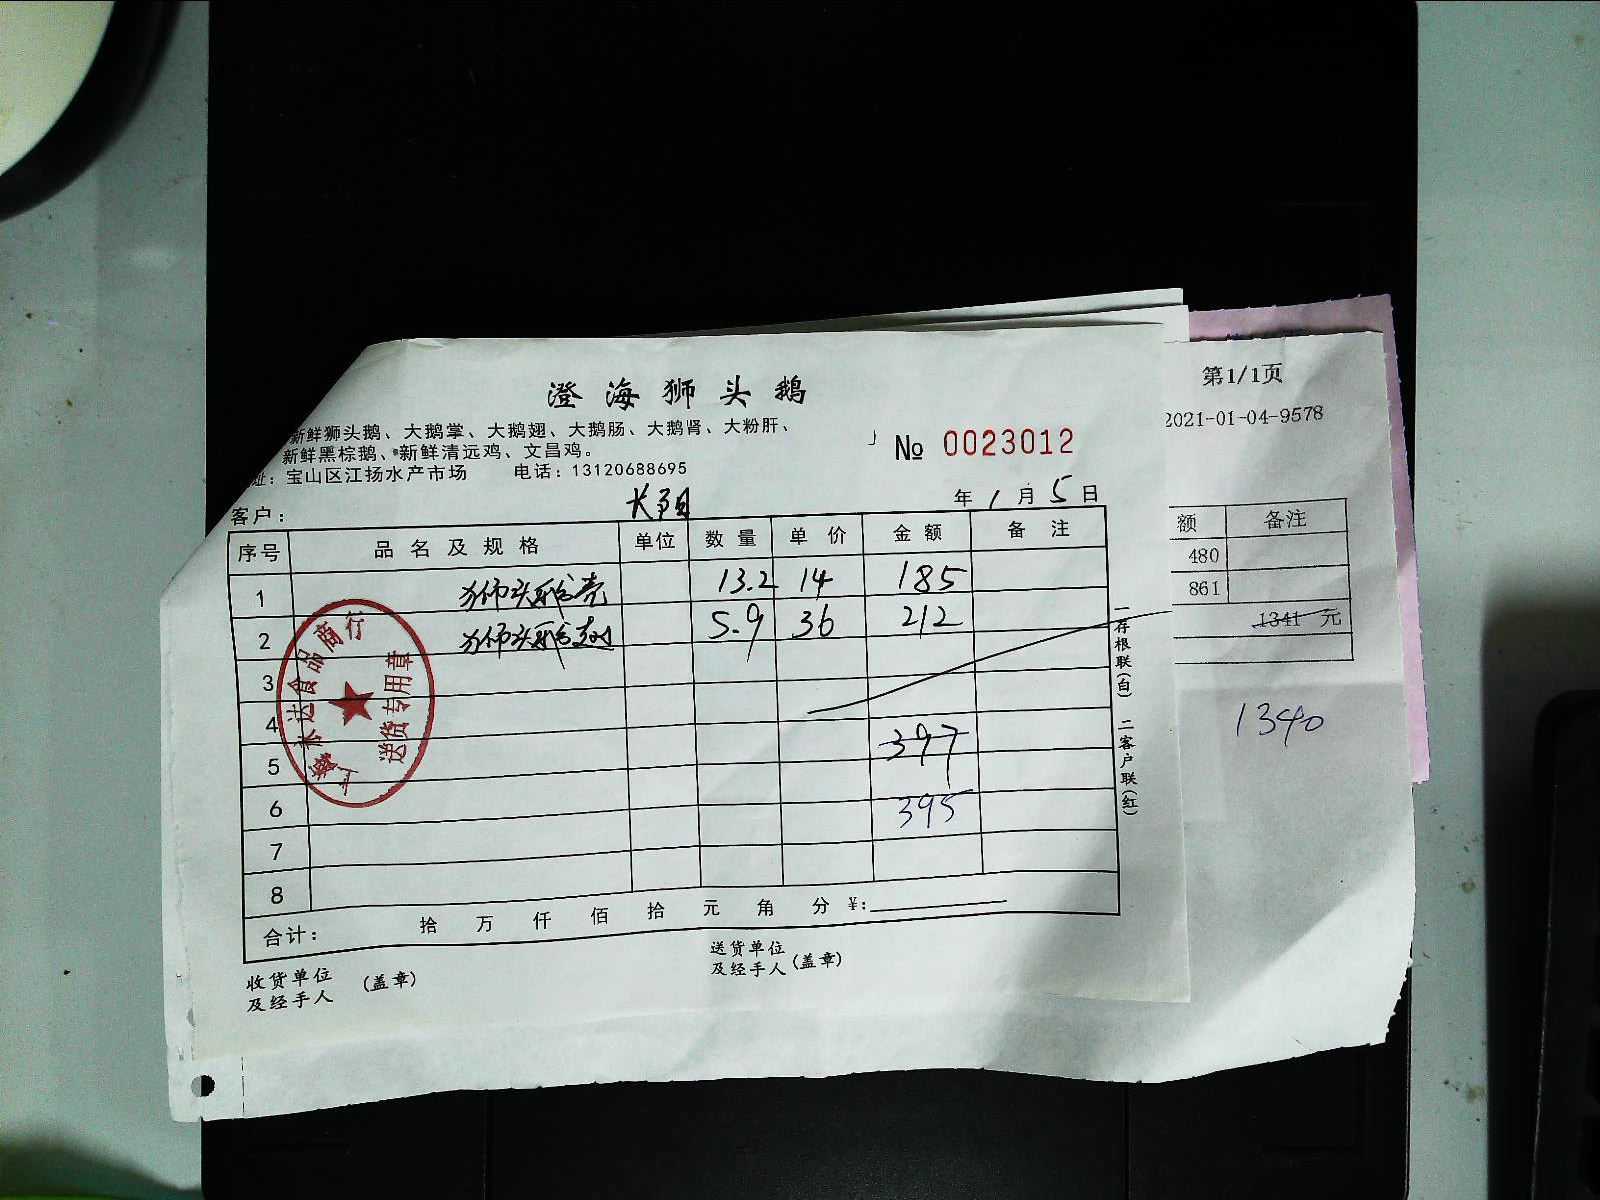 澄海狮头鹅
新鲜狮头鹅、大鹅掌、大鹅翅、大鹅肠、大鹅肾、大粉肝、
新鲜黑棕鹅、新鲜清远鸡、文昌鸡。
址：宝山区江扬水产市场 电话：13120688695
№ 0023012
客户： 长阳 年 1 月 5 日
序号 品名及规格 单位 数量 单价 金额 备注
1 狮头鹅壳 13.2 14 185
2 狮头鹅翅 5.9 36 212
3
4
5 397
6 395
7
8
合计： 拾 万 仟 佰 拾 元 角 分 ¥：
收货单位
及经手人 (盖章)
送货单位
及经手人 (盖章)
一存根联(白) 二客户联(红)
达食品商行
送货专用章
第1/1页
2021-01-04-9578
额 备注
480
861
1341 元
1340